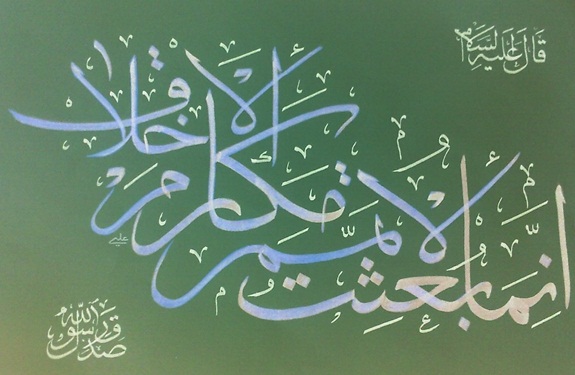 قَالَ عَلَيْهِ السَّلَام
إِنَّمَا بُعِثْتُ لِأُتَمِّمَ مَكَارِمَ الْأَخْلَاقِ
صدق رسول الله